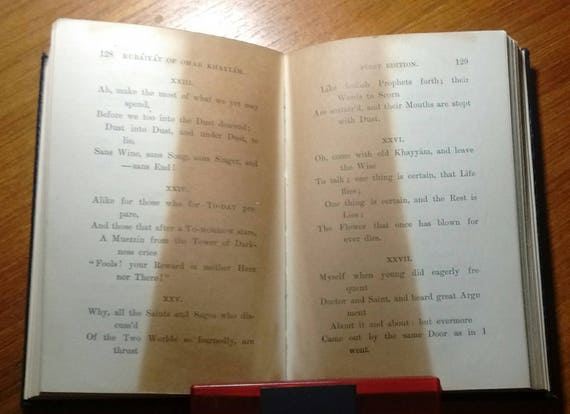 128 RUBÁIYÁT OF OMAR KHAYYÁM.
XXIII.
Ah, make the most of what we yet may
spend,
Before we too into the Dust descend;
Dust into Dust, and under Dust, to
lie,
Sans Wine, sans Song, sans Singer, and
—sans End!
XXIV.
Alike for those who for TO-DAY pre-
pare,
And those that after a TO-MORROW stare,
A Muezzín from the Tower of Dark-
ness cries
"Fools! your Reward is neither Here
nor There!"
XXV.
Why, all the Saints and Sages who dis-
cuss'd
Of the Two Worlds so learnedly, are
thrust
FIRST EDITION. 129
Like foolish Prophets forth; their
Words to Scorn
Are scatter'd, and their Mouths are stopt
with Dust.
XXVI.
Oh, come with old Khayyám, and leave
the Wise
To talk; one thing is certain, that Life
flies;
One thing is certain, and the Rest is
Lies;
The Flower that once has blown for
ever dies.
XXVII.
Myself when young did eagerly fre-
quent
Doctor and Saint, and heard great Argu
ment
About it and about: but evermore
Came out by the same Door as in I
went.